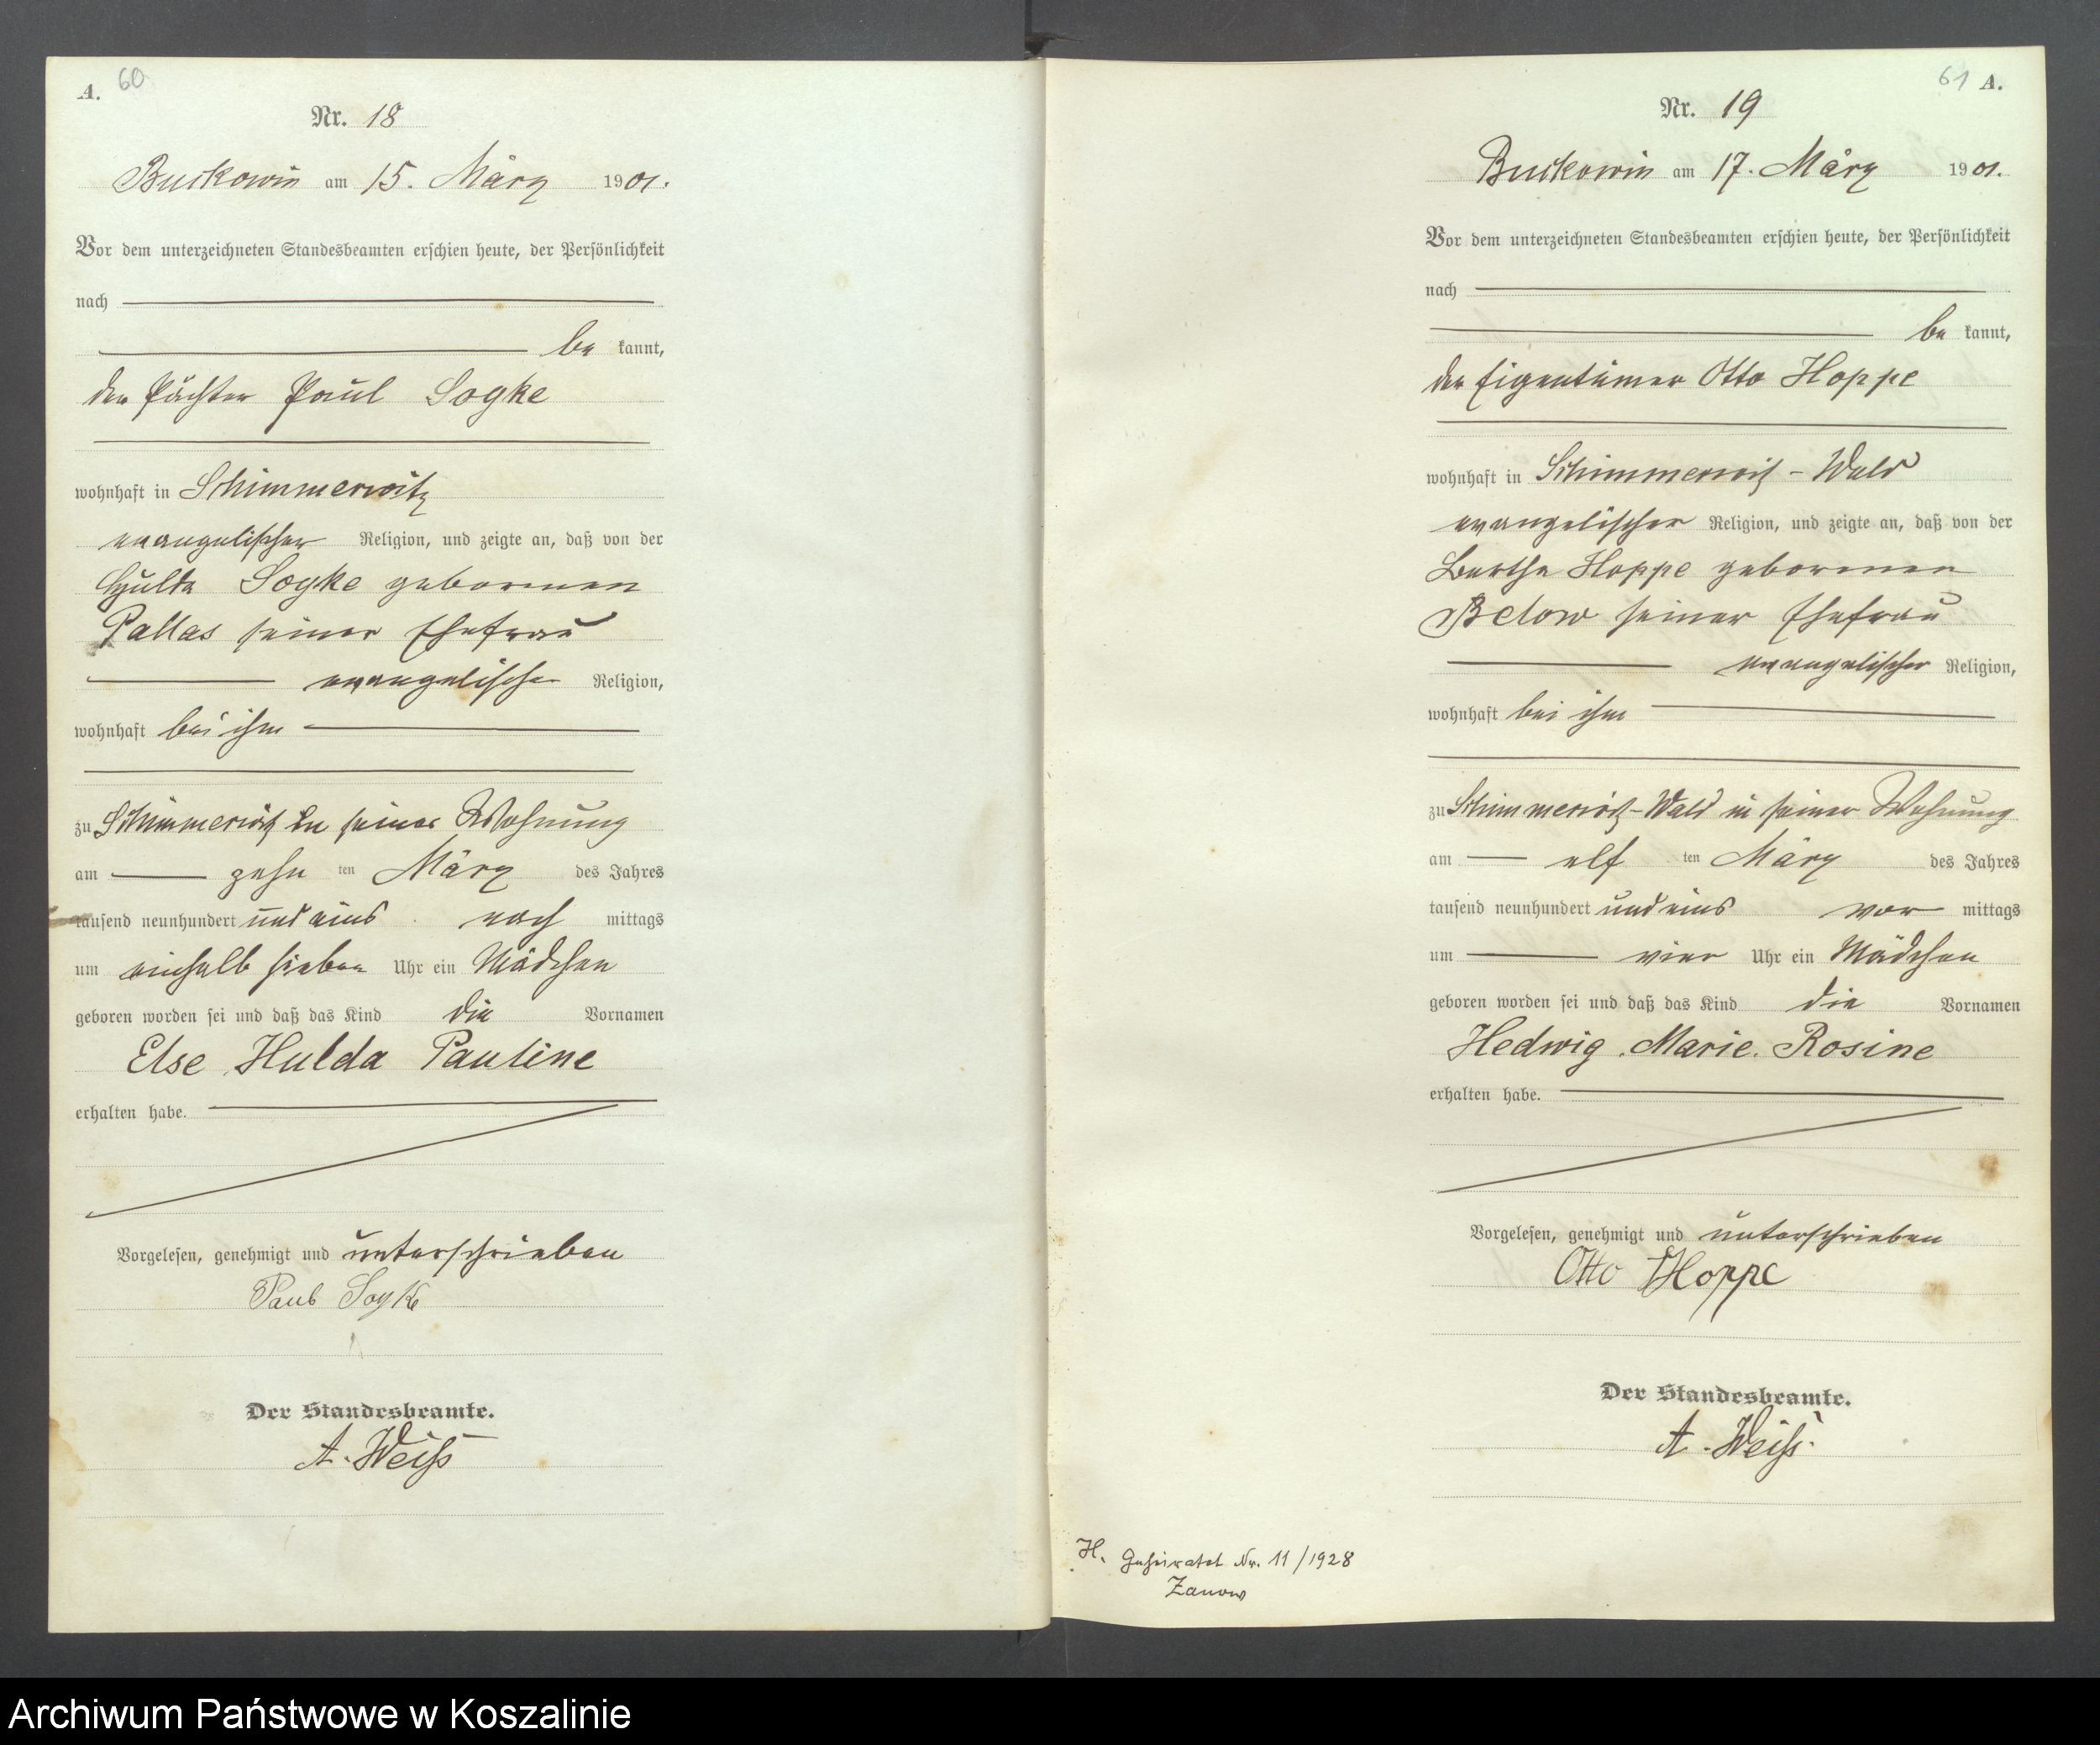 A. 60
Nr. 18
Buckowin am 15. März 1901.
Vor dem unterzeichneten Standesbeamten erschien heute, der Persönlichkeit
nach
be kannt,
der Pächter Paul Sogke
wohnhaft in Schimmerwitz
evangelischer Religion, und zeigte an, daß von der
Hulda Sogke geborenen
Pallas seiner Ehefrau
evangelischer Religion,
wohnhaft bei ihm
zu Schimmerwitz in seiner Wohnung
am zehn ten März des Jahres
tausend neunhundert und eins nach mittags
um einhalb sieben Uhr ein Mädchen
geboren worden sei und daß das Kind die Vornamen
Else Hulda Pauline
erhalten habe.
Vorgelesen, genehmigt und unterschrieben
Paul Sogke
Der Standesbeamte.
A. Weiß
61 A.
Nr. 19
Buckowin am 17. März 1901.
Vor dem unterzeichneten Standesbeamten erschien heute, der Persönlichkeit
nach
be kannt,
der Eigentümer Otto Hoppe
wohnhaft in Schimmerwitz - Wald
evangelischer Religion, und zeigte an, daß von der
Bertha Hoppe geborenen
Below seiner Ehefrau
evangelischer Religion,
wohnhaft bei ihm
zu Schimmerwitz-Wald in seiner Wohnung
am elf ten März des Jahres
tausend neunhundert und eins vor mittags
um vier Uhr ein Mädchen
geboren worden sei und daß das Kind die Vornamen
Hedwig Marie Rosine
erhalten habe.
Vorgelesen, genehmigt und unterschrieben
Otto Hoppe
Der Standesbeamte.
A. Weiß.
H. Geheiratet Nr. 11/1928
Zanow
Archiwum Państwowe w Koszalinie